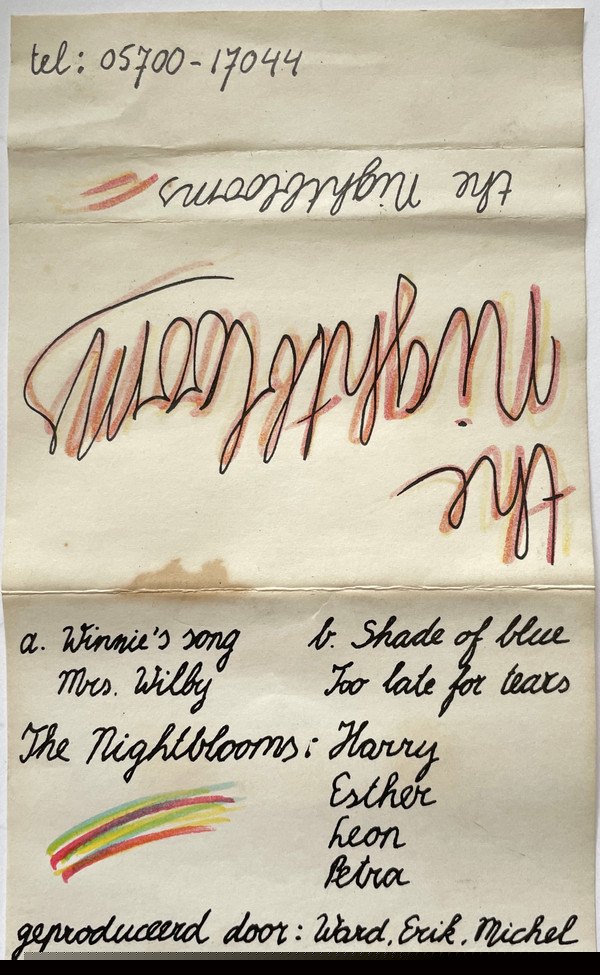 tel: 05700-17044
the Nightblooms
the
Nightblooms
a. Winnie's song
Mrs. Wilby
b. Shade of blue
Too late for tears
The Nightblooms: Harry
Esther
Leon
Petra
geproduceerd door: Ward, Erik, Michel